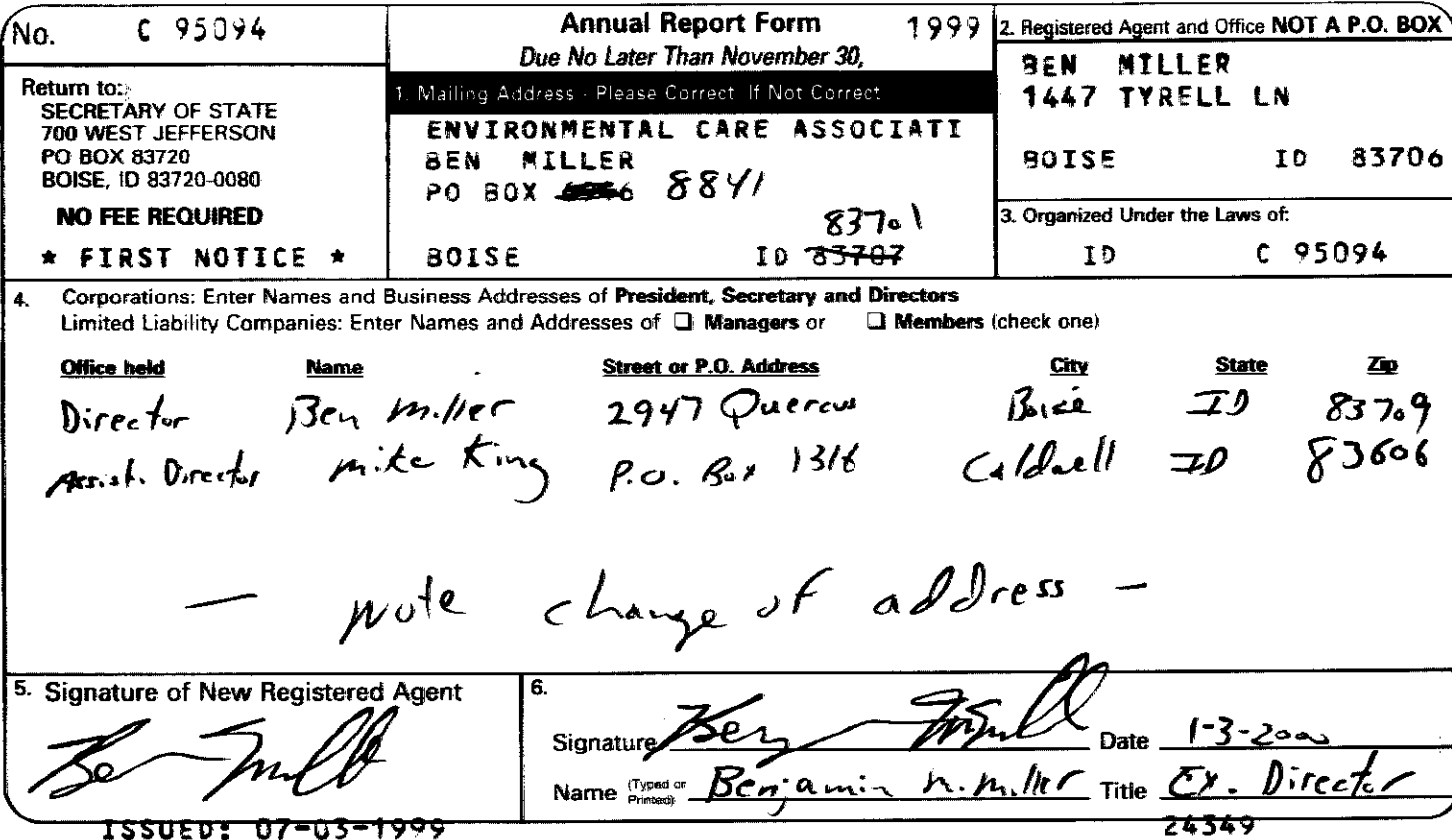 No. C 95094
Annual Report Form 1999
Due No Later Than November 30,
Return to:
SECRETARY OF STATE
700 WEST JEFFERSON
PO BOX 83720
BOISE, ID 83720-0080
NO FEE REQUIRED
* FIRST NOTICE *
1. Mailing Address - Please Correct If Not Correct
ENVIRONMENTAL CARE ASSOCIATI
BEN MILLER
PO BOX 8841
83701
BOISE ID 83707
2. Registered Agent and Office NOT A P.O. BOX
BEN MILLER
1447 TYRELL LN
BOISE ID 83706
3. Organized Under the Laws of:
ID C 95094
4. Corporations: Enter Names and Business Addresses of President, Secretary and Directors
Limited Liability Companies: Enter Names and Addresses of ❑ Managers or ❑ Members (check one)
Office held Name Street or P.O. Address City State Zip
Director Ben Miller 2947 Quercus Boise ID 83709
Assist. Director Mike King P.O. Box 1316 Caldwell ID 83606
— note change of address —
5. Signature of New Registered Agent
6.
Signature Date 1-3-2000
Name (Typed or Printed) Benjamin N. Miller Title Ex. Director
ISSUED: 07-03-1999
24349